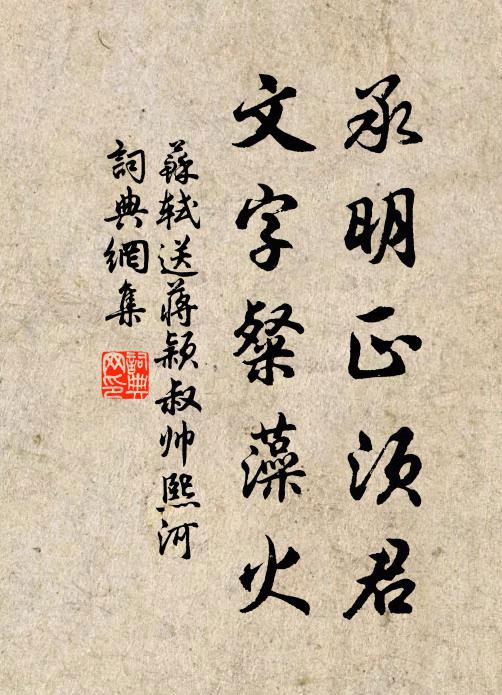 承明正須君
文字粲藻火
蘇軾送蔣潁叔帥熙河
詞典網集
詞典網印